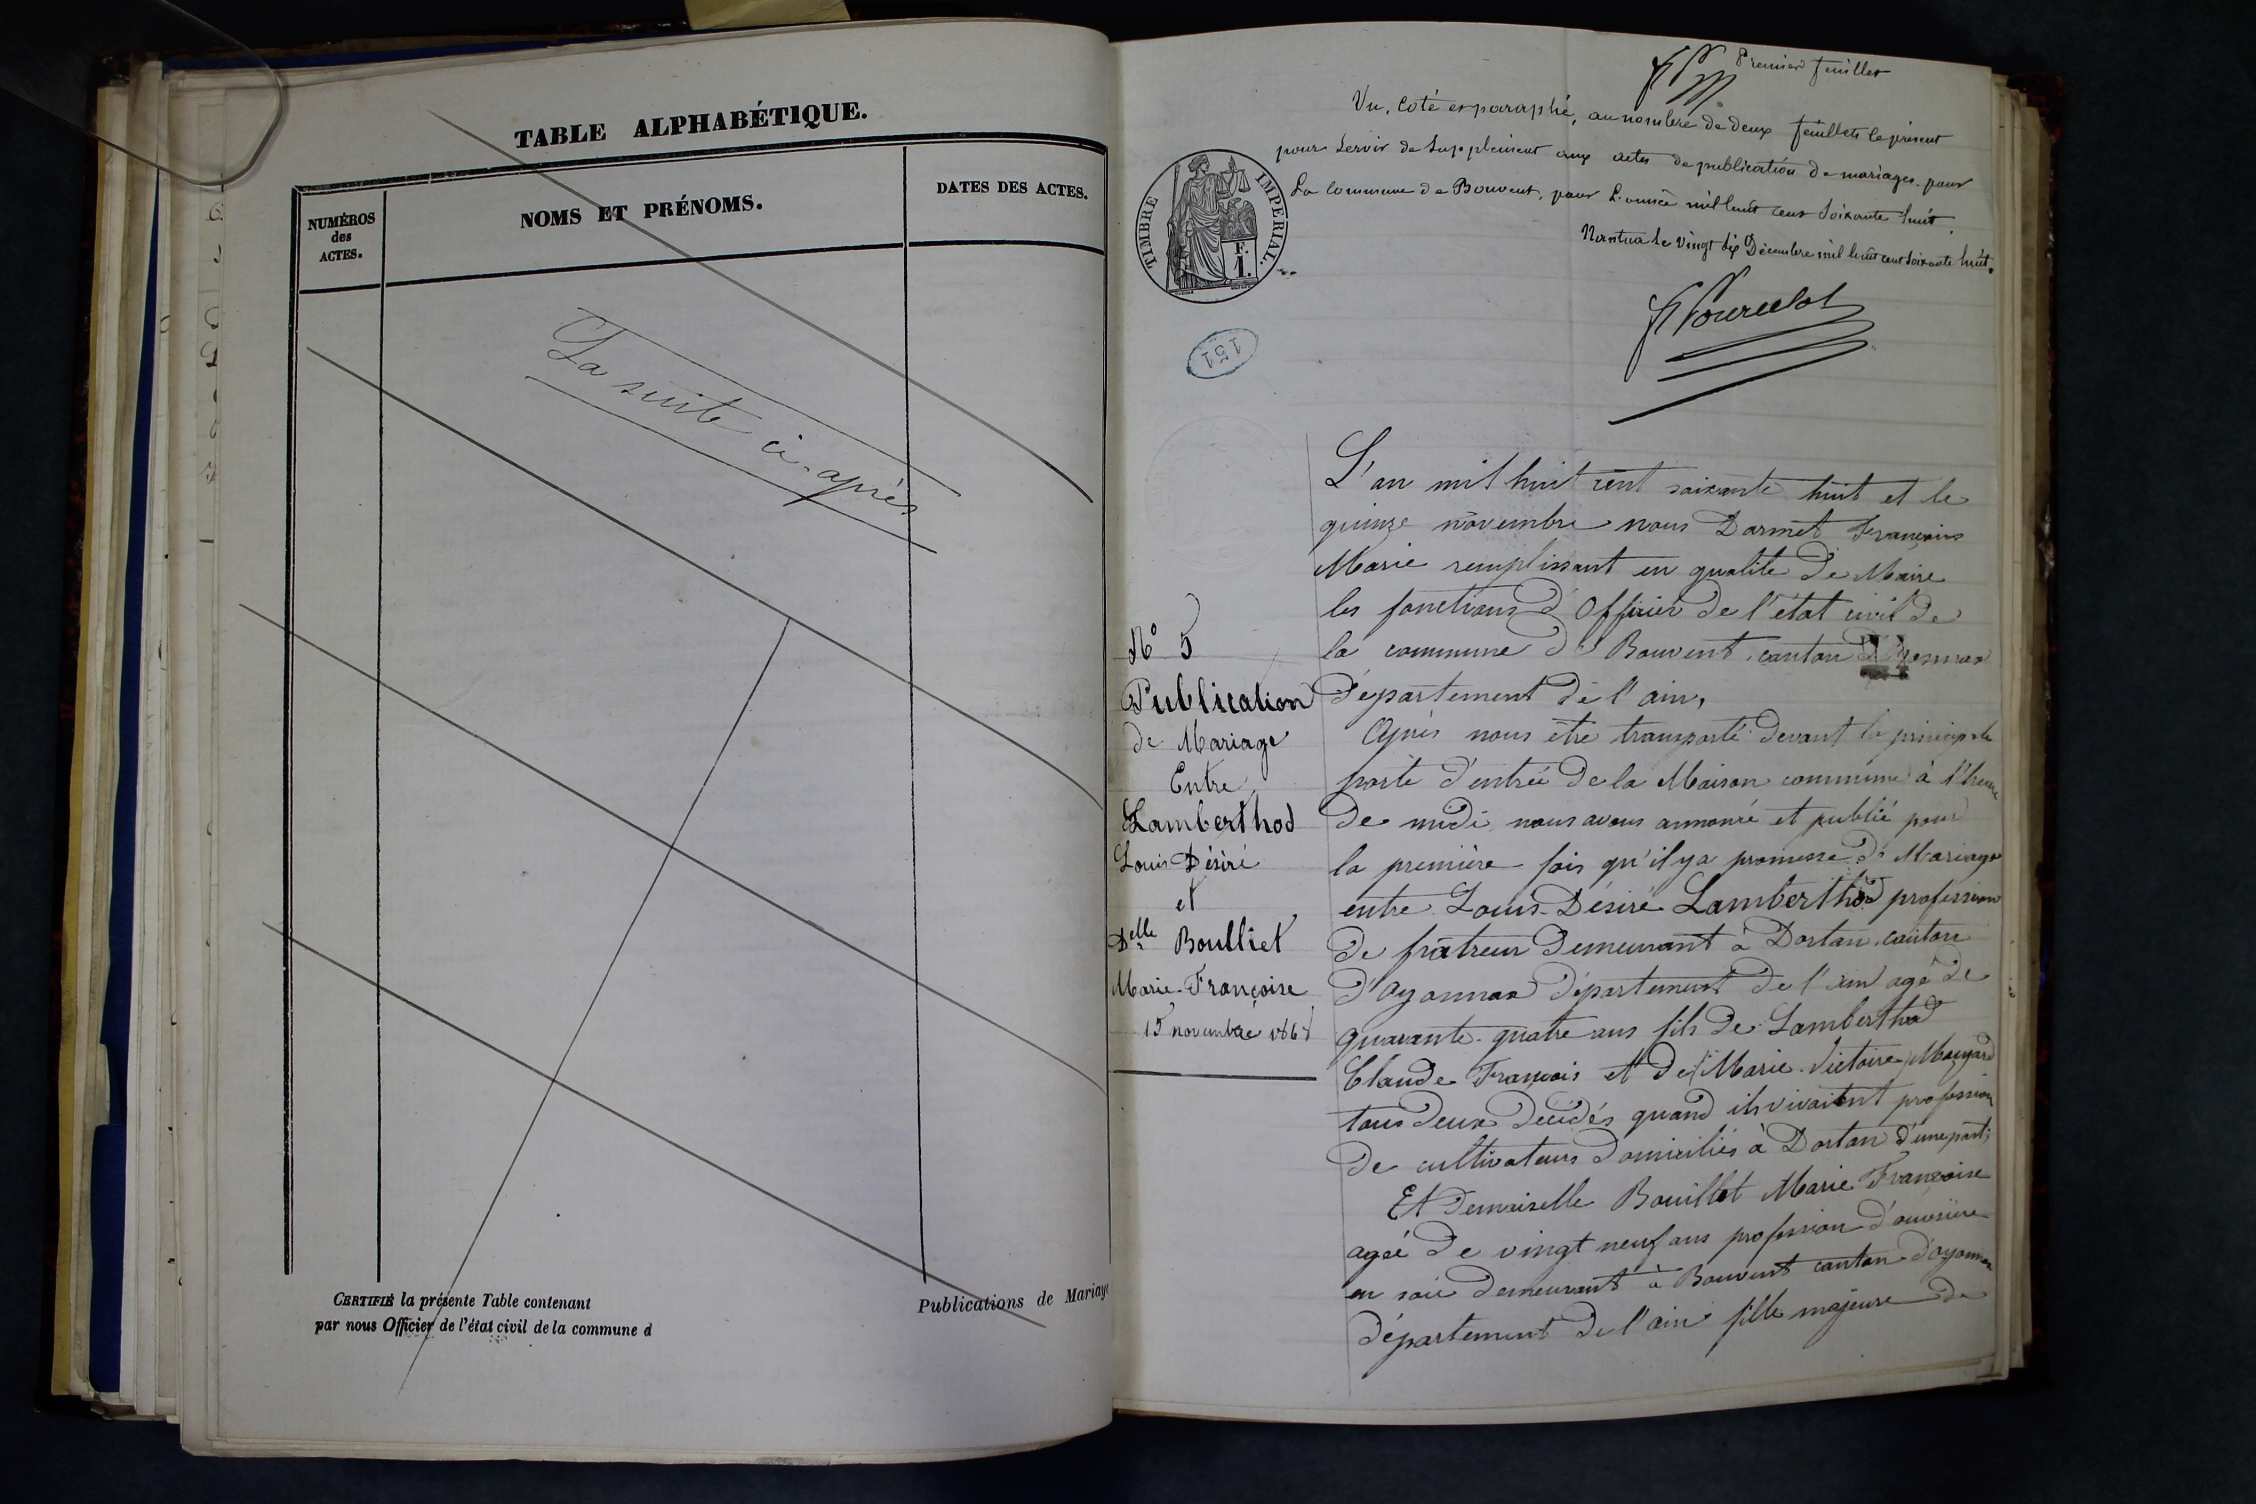 TABLE ALPHABÉTIQUE.
NUMÉROS
des
ACTES.
NOMS ET PRÉNOMS.
DATES DES ACTES.
La suite ci-après
CERTIFIÉ la présente Table contenant
par nous Officier de l'état civil de la commune d
Publications de Mariage
Premier feuillet
Vu, Coté et paraphé, au nombre de deux feuillets le présent
pour servir de supplément aux actes de publication de mariages pour
La Commune de Bouvent, pour L'année mil huit cent soixante huit.
Nantua le vingt six Décembre mil huit cent soixante huit.
TIMBRE IMPÉRIAL.
F.
1.
151
L'an mil huit cent soixante huit et le
quinze novembre nous Darmet François
Marie remplissant en qualité de Maire
les fonctions d'Officier de l'état civil de
la commune de Bouvent, canton
Département de l'ain,
Après nous être transporté devant la principale
porte d'entrée de la Maison commune à l'heure
de midi nous avons annoncé et publié pour
la première fois qu'il y a promesse de Mariage
entre Louis-Désiré Lamberthod profession
de demeurant à Dortan canton
d'Oyonnax département de l'ain agé de
quarante-quatre ans fils de Lamberthod
Claude François et de Marie Victoire
tous deux décédés quand ils vivaient profession
de cultivateurs domiciliés à Dortan d'une part;
Et Demoiselle Bouillet Marie Françoise
agée de vingt neuf ans profession d'ouvrière
en soie demeurant à Bouvent canton d'oyonnax
département de l'ain fille majeure de
N° 5
Publication
de Mariage
Entre
Lamberthod
Louis Désiré
et
Delle Boulliet
Marie-Françoise
15 novembre 1868